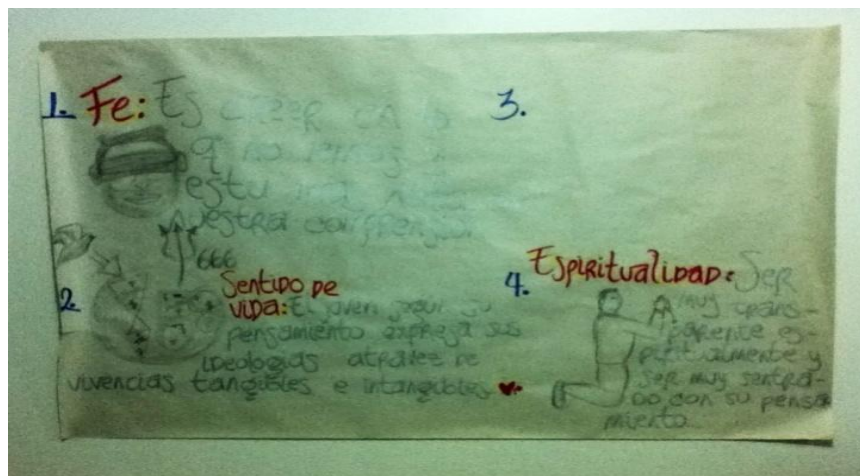 1. Fe: Es creer en lo
q no vemos y
está más
nuestra comprensión
666
2. Sentido de
vida: El joven
pensamiento expresa sus
ideologías atravez de
vivencias tangibles e intangibles
3.
4. Espiritualidad: Ser
muy trans-
parente es-
piritualmente y
ser muy sentra-
do con su pensa
miento...